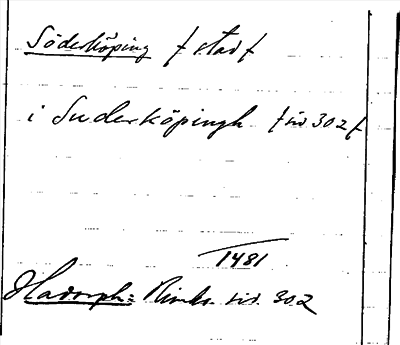 Söderköping /stad/
i Suderköpingh /sid 302/
1481
Hadorph: Rimkr. sid. 302